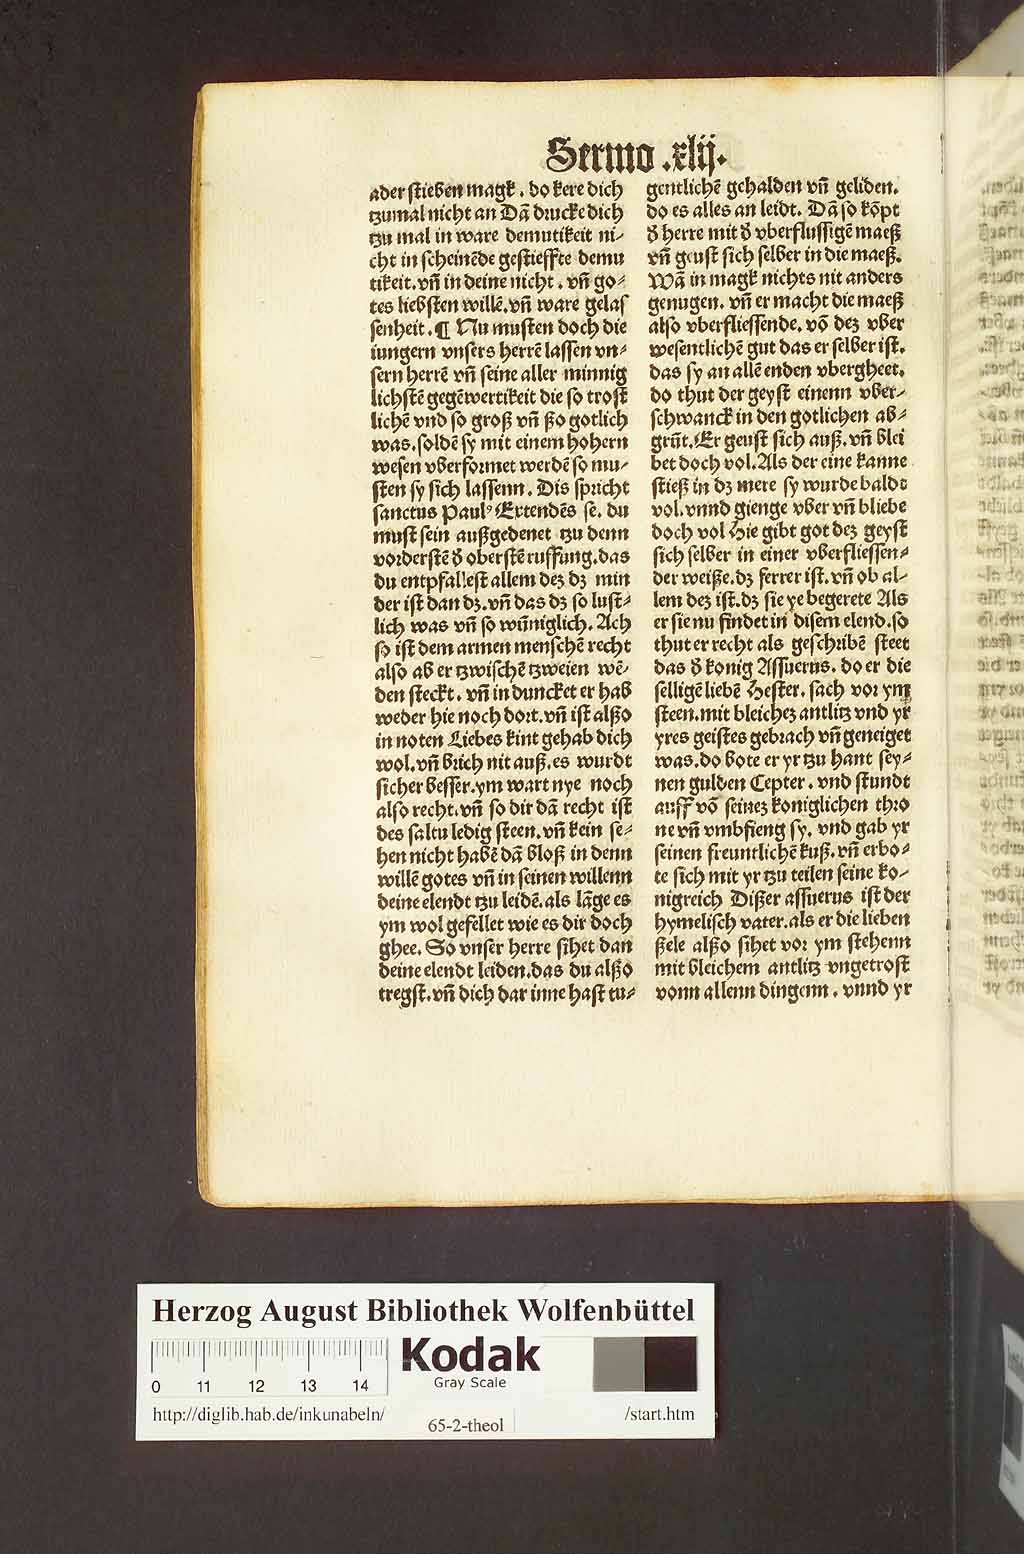 Sermo .xlij.
ader stieben magk . do kere dich
tzumal nicht an Dā drucke dich
tzu mal in ware demutikeit ni⸗
cht in scheinēde gestieffte demu
tikeit. vñ in deine nicht . vñ go⸗
tes liebsten willē. vñ ware gelas
senheit. ¶ Nu musten doch die
iungern vnsers herrē lassen vn⸗
sern herrē vñ seine aller minnig
lichstē gegēwertikeit die so trost
lichē vnd so groß vñ ßo gotlich
was. soldē sy mit einem hohern
wesen vberformet werdē so mu⸗
sten sy sich lassenn . Dis spricht
sanctus Paulꝰ Extendēs se. du
must sein außgedenet tzu denn
vorderstē d̕ oberstē ruffung. das
du entpfallest allem dez dz min
der ist dan dz. vñ das dz so lust⸗
lich was vñ so wūniglich. Ach
so ist dem armen menschē recht
also ab er tzwischē tzweien wē⸗
den steckt. vñ in duncket er hab
weder hie noch dort. vñ ist alßo
in noten Liebes kint gehab dich
wol. vñ brich nit auß. es wurdt
sicher besser. ym wart nye noch
also recht. vñ so dir dā recht ist
des saltu ledig steen. vñ kein se⸗
hen nicht habē dā bloß in denn
willē gotes vñ in seinen willenn
deine elendt tzu leidē. als lāge es
ym wol gefellet wie es dir doch
ghee. So vnser herre sihet dan
deine elendt leiden. das du alßo
tregst. vñ dich dar inne hast tu⸗
gentlichē gehalden vñ geliden.
do es alles an leidt. Dā so kōpt
d̕ herre mit d̕ vberflussigē maeß
vñ geust sich selber in die maeß.
Wā in magk nichts nit anders
genugen. vñ er macht die maeß
also vberfliessende. vō dez vber
wesentlichē gut das er selber ist.
das sy an allē enden vbergheet.
do thut der geyst einenn vber⸗
schwanck in den gotlichen ab⸗
grūt. Er geust sich auß. vñ blei
bet doch vol. Als der eine kanne
stieß in dz mere sy wurde baldt
vol. vnnd gienge vber vñ bliebe
doch vol Hie gibt got dez geyst
sich selber in einer vberfliessen⸗
der weiße. dz ferrer ist. vñ ob al⸗
lem dez ist. dz sie ye begerete Als
er sie nu findet in disem elend. so
thut er recht als geschribē steet
das d̕ konig Assuerus. do er die
selligē liebē Hester. sach vor ym
steen. mit bleichez antlitz vnd yr
yres geistes gebrach vñ geneiget
was. do bote er yr tzu hant sey⸗
nen gulden Cepter . vnd stundt
auff vō seinez koniglichen thro
ne vñ vmbfieng sy. vnd gab yr
seinen freuntlichē kuß. vñ erbo⸗
te sich mit yr tzu teilen seine ko⸗
nigreich Dißer assuerus ist der
hymelisch vater. als er die lieben
ßele alßo sihet vor ym stehenn
mit bleichem antlitz vngetrost
vonn allenn dingenn . vnnd yr
Herzog August Bibliothek Wolfenbüttel
0 11 12 13 14
Kodak
Gray Scale
http://diglib.hab.de/inkunabeln/
65-2-theol
/start.htm